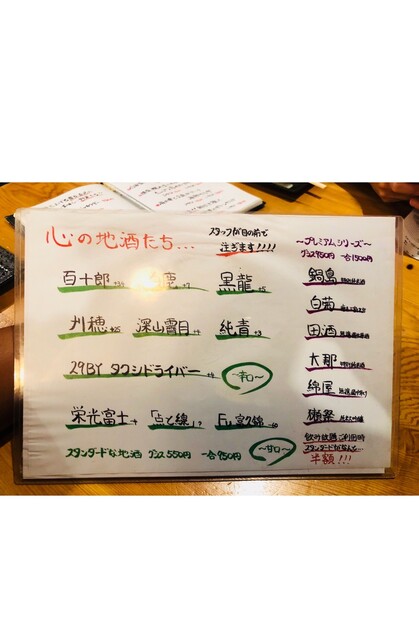 心の地酒たち...
スタッフが目の前で
注ぎます!!!!
百十郎 鹿 +7 黒龍 +5
刈穂 +25 深山霽月 +4 純青 +3
29BY タクシドライバー +9
〜辛口〜
栄光富士 「点と線」 Fu.富久錦
スタンダードな地酒 グラス550円 一合950円
〜甘口〜
〜プレミアムシリーズ〜
グラス950円 一合1500円
鍋島
白菊
田酒
大那
綿屋
獺祭
飲み放題ご利用時
スタンダードがなんと...
半額!!!